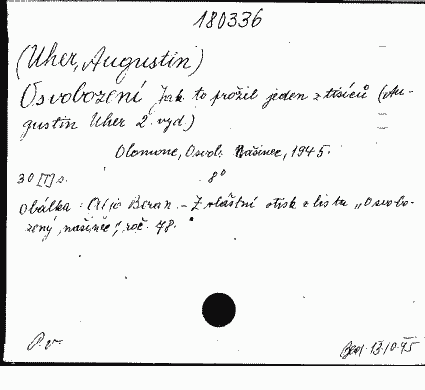 180336
(Uher, Augustin)
Osvobození Jak to prožil jeden z tisíců (Au-
gustin Uher 2. vyd.)
Olomouc, Osvob. Našinec, 1945.
30 [I] s. 8°
Obálka: Beran. - Zvláštní otisk z listu „Osvobo-
zený našinec", roč. 78.
P. v.
13.10.45